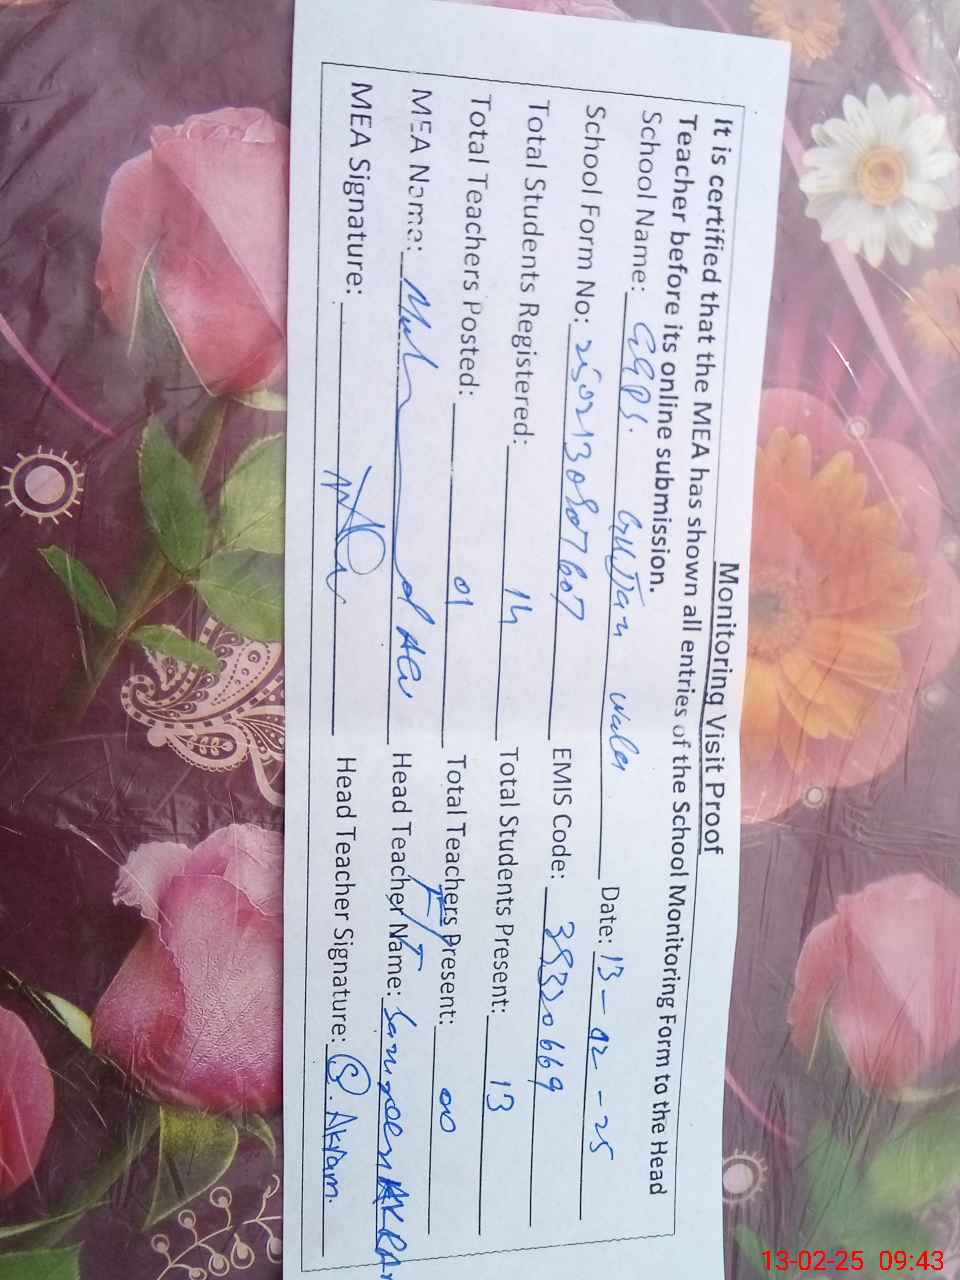 Monitoring Visit Proof
It is certified that the MEA has shown all entries of the School Monitoring Form to the Head
Teacher before its online submission.
School Name: GGPS. Gujjan wala Date: 13-02-25
School Form No: 2502130807607 EMIS Code: 38320669
Total Students Registered: 14 Total Students Present: 13
Total Teachers Posted: 01 Total Teachers Present: 00
MEA Name: Ali Head Teacher Name: AKRAM
MEA Signature: Head Teacher Signature: S. Akram.
13-02-25 09:43